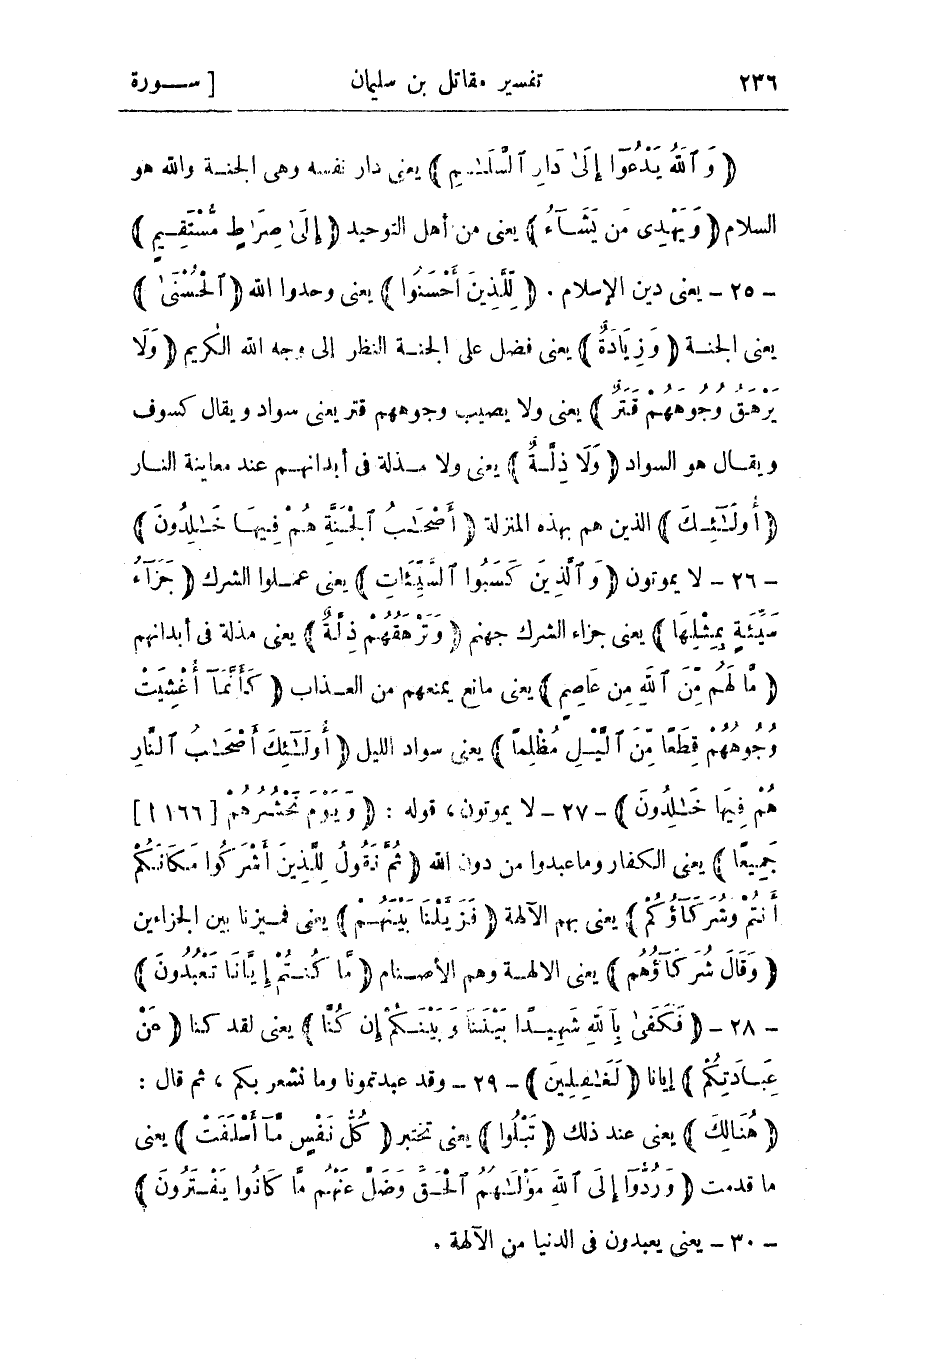 ٢٣٦ تفسير مقاتل بن سليمان [ ســـورة
( وَٱللَّهُ يَدْعُوٓا إِلَىٰ دَارِ ٱلسَّلَـٰمِ ) يعنى دار نفسه وهى الجنة والله هو
السلام ( وَيَهْدِى مَن يَشَآءُ ) يعنى من أهل التوحيد ( إِلَىٰ صِرَٰطٍ مُّسْتَقِيمٍ )
- ٢٥ - يعنى دين الإسلام . ( لِّلَّذِينَ أَحْسَنُوا ) يعنى وحدوا الله ( ٱلْحُسْنَىٰ )
يعنى الجنة ( وَزِيَادَةٌ ) يعنى فضل على الجنة النظر إلى وجه الله الكريم ( وَلَا
يَرْهَقُ وُجُوهَهُمْ قَتَرٌ ) يعنى ولا يصيب وجوههم قتر يعنى سواد ويقال كسوف
ويقال هو السواد ( وَلَا ذِلَّةٌ ) يعنى ولا مذلة فى أبدانهم عند معاينة النار
( أُولَـٰٓئِكَ ) الذين هم بهذه المنزلة ( أَصْحَـٰبُ ٱلْجَنَّةِ هُمْ فِيهَا خَـٰلِدُونَ )
- ٢٦ - لا يموتون ( وَٱلَّذِينَ كَسَبُوا ٱلسَّيِّئَاتِ ) يعنى عملوا الشرك ( جَزَآءُ
سَيِّئَةٍ بِمِثْلِهَا ) يعنى جزاء الشرك جهنم ( وَتَرْهَقُهُمْ ذِلَّةٌ ) يعنى مذلة فى أبدانهم
( مَّا لَهُم مِّنَ ٱللَّهِ مِن عَاصِمٍ ) يعنى مانع يمنعهم من العذاب ( كَأَنَّمَآ أُغْشِيَتْ
وُجُوهُهُمْ قِطَعًا مِّنَ ٱلَّيْلِ مُظْلِمًا ) يعنى سواد الليل ( أُولَـٰٓئِكَ أَصْحَـٰبُ ٱلنَّارِ
هُمْ فِيهَا خَـٰلِدُونَ ) - ٢٧ - لا يموتون ، قوله : ( وَيَوْمَ نَحْشُرُهُمْ [ ١٦٦ ا ]
جَمِيعًا ) يعنى الكفار وما عبدوا من دون الله ( ثُمَّ نَقُولُ لِلَّذِينَ أَشْرَكُوا مَكَانَكُمْ
أَنتُمْ وشُرَكَآؤُكُمْ ) يعنى بهم الآلهة ( فَزَيَّلْنَا بَيْنَهُمْ ) يعنى فميزنا بين الجزاءين
( وَقَالَ شُرَكَآؤُهُم ) يعنى الالهة وهم الأصنام ( مَّا كُنتُمْ إِيَّانَا تَعْبُدُونَ )
- ٢٨ - ( فَكَفَىٰ بِٱللَّهِ شَهِيدًا بَيْنَنَا وَبَيْنَكُمْ إِن كُنَّا ) يعنى لقد كنا ( عَنْ
عِبَادَتِكُمْ ) إيانا ( لَغَـٰفِلِينَ ) - ٢٩ - وقد عبدتمونا وما نشعر بكم ، ثم قال :
( هُنَالِكَ ) يعنى عند ذلك ( تَبْلُوا ) يعنى تختبر ( كُلُّ نَفْسٍ مَّآ أَسْلَفَتْ ) يعنى
ما قدمت ( وَرُدُّوٓا إِلَى ٱللَّهِ مَوْلَـٰهُمُ ٱلْحَقِّ وَضَلَّ عَنْهُم مَّا كَانُوا يَفْتَرُونَ )
- ٣٠ - يعنى يعبدون فى الدنيا من الآلهة .